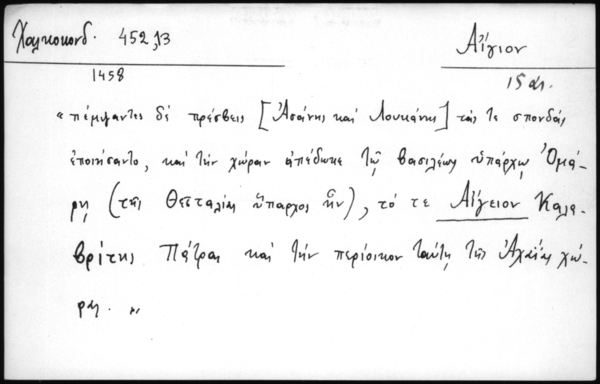 Χαλκοκονδ. 452,13
Αἴγιον
1458
15 αι.
«πέμψαντες δὲ πρέσβεις [Ἀσάνης καὶ Λουκάνης] τάς τε σπονδὰς
ἐποιήσαντο, καὶ τὴν χώραν ἀπέδωκε τῷ βασιλέως ὑπάρχῳ Ὀμά-
ρῃ (τῆς Θετταλίας ὕπαρχος ἦν), τό τε Αἴγειον Καλα-
βρίτης Πάτρας καὶ τὴν περίοικον ταύτῃ τῆς Ἀχαΐας χώ-
ρας. »